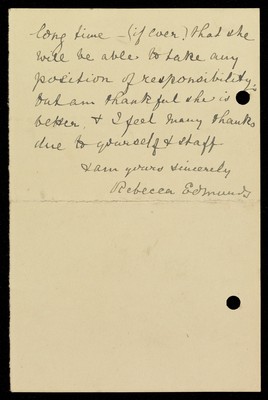 long time - (if ever) that she
will be able to take any
position of responsibility,
but am thankful she is
better. & I feel many thanks
due to yourself & staff
I am yours sincerely
Rebecca Edmunds